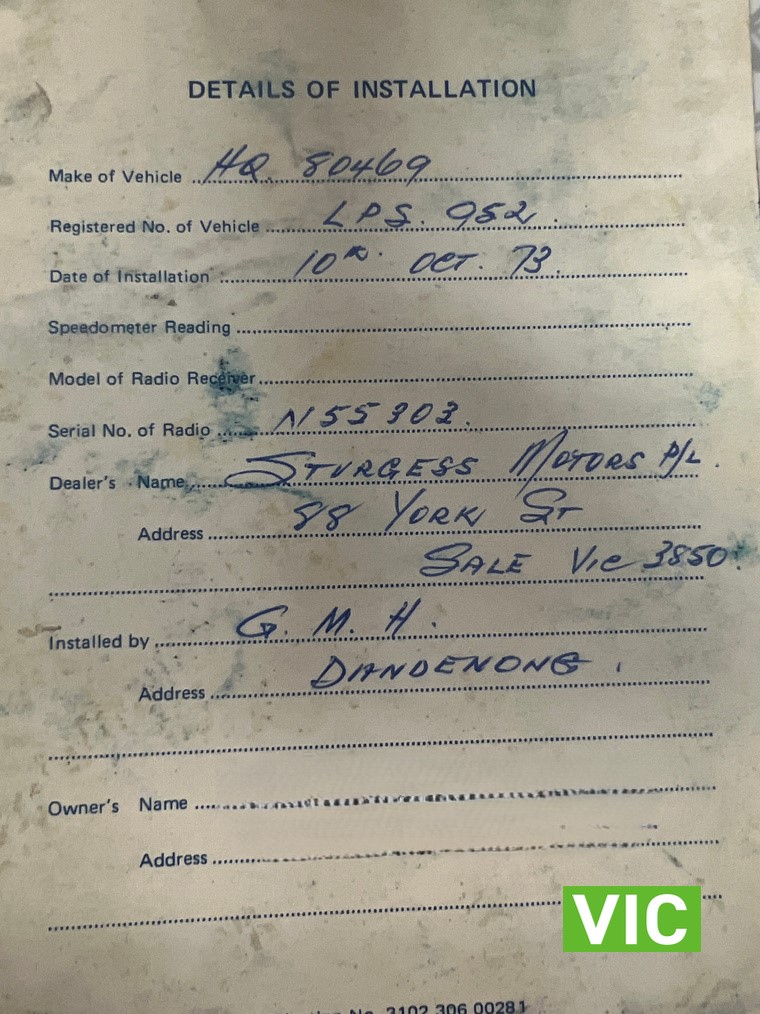 DETAILS OF INSTALLATION
Make of Vehicle HQ 80469
Registered No. of Vehicle LPS. 952.
Date of Installation 10th. OCT. 73.
Speedometer Reading
Model of Radio Receiver
Serial No. of Radio N55303.
Dealer's Name STURGESS MOTORS P/L.
Address 88 YORK ST
SALE Vic 3850.
Installed by G. M. H.
Address DANDENONG.
Owner's Name
Address
VIC
No. 3102 306 00281